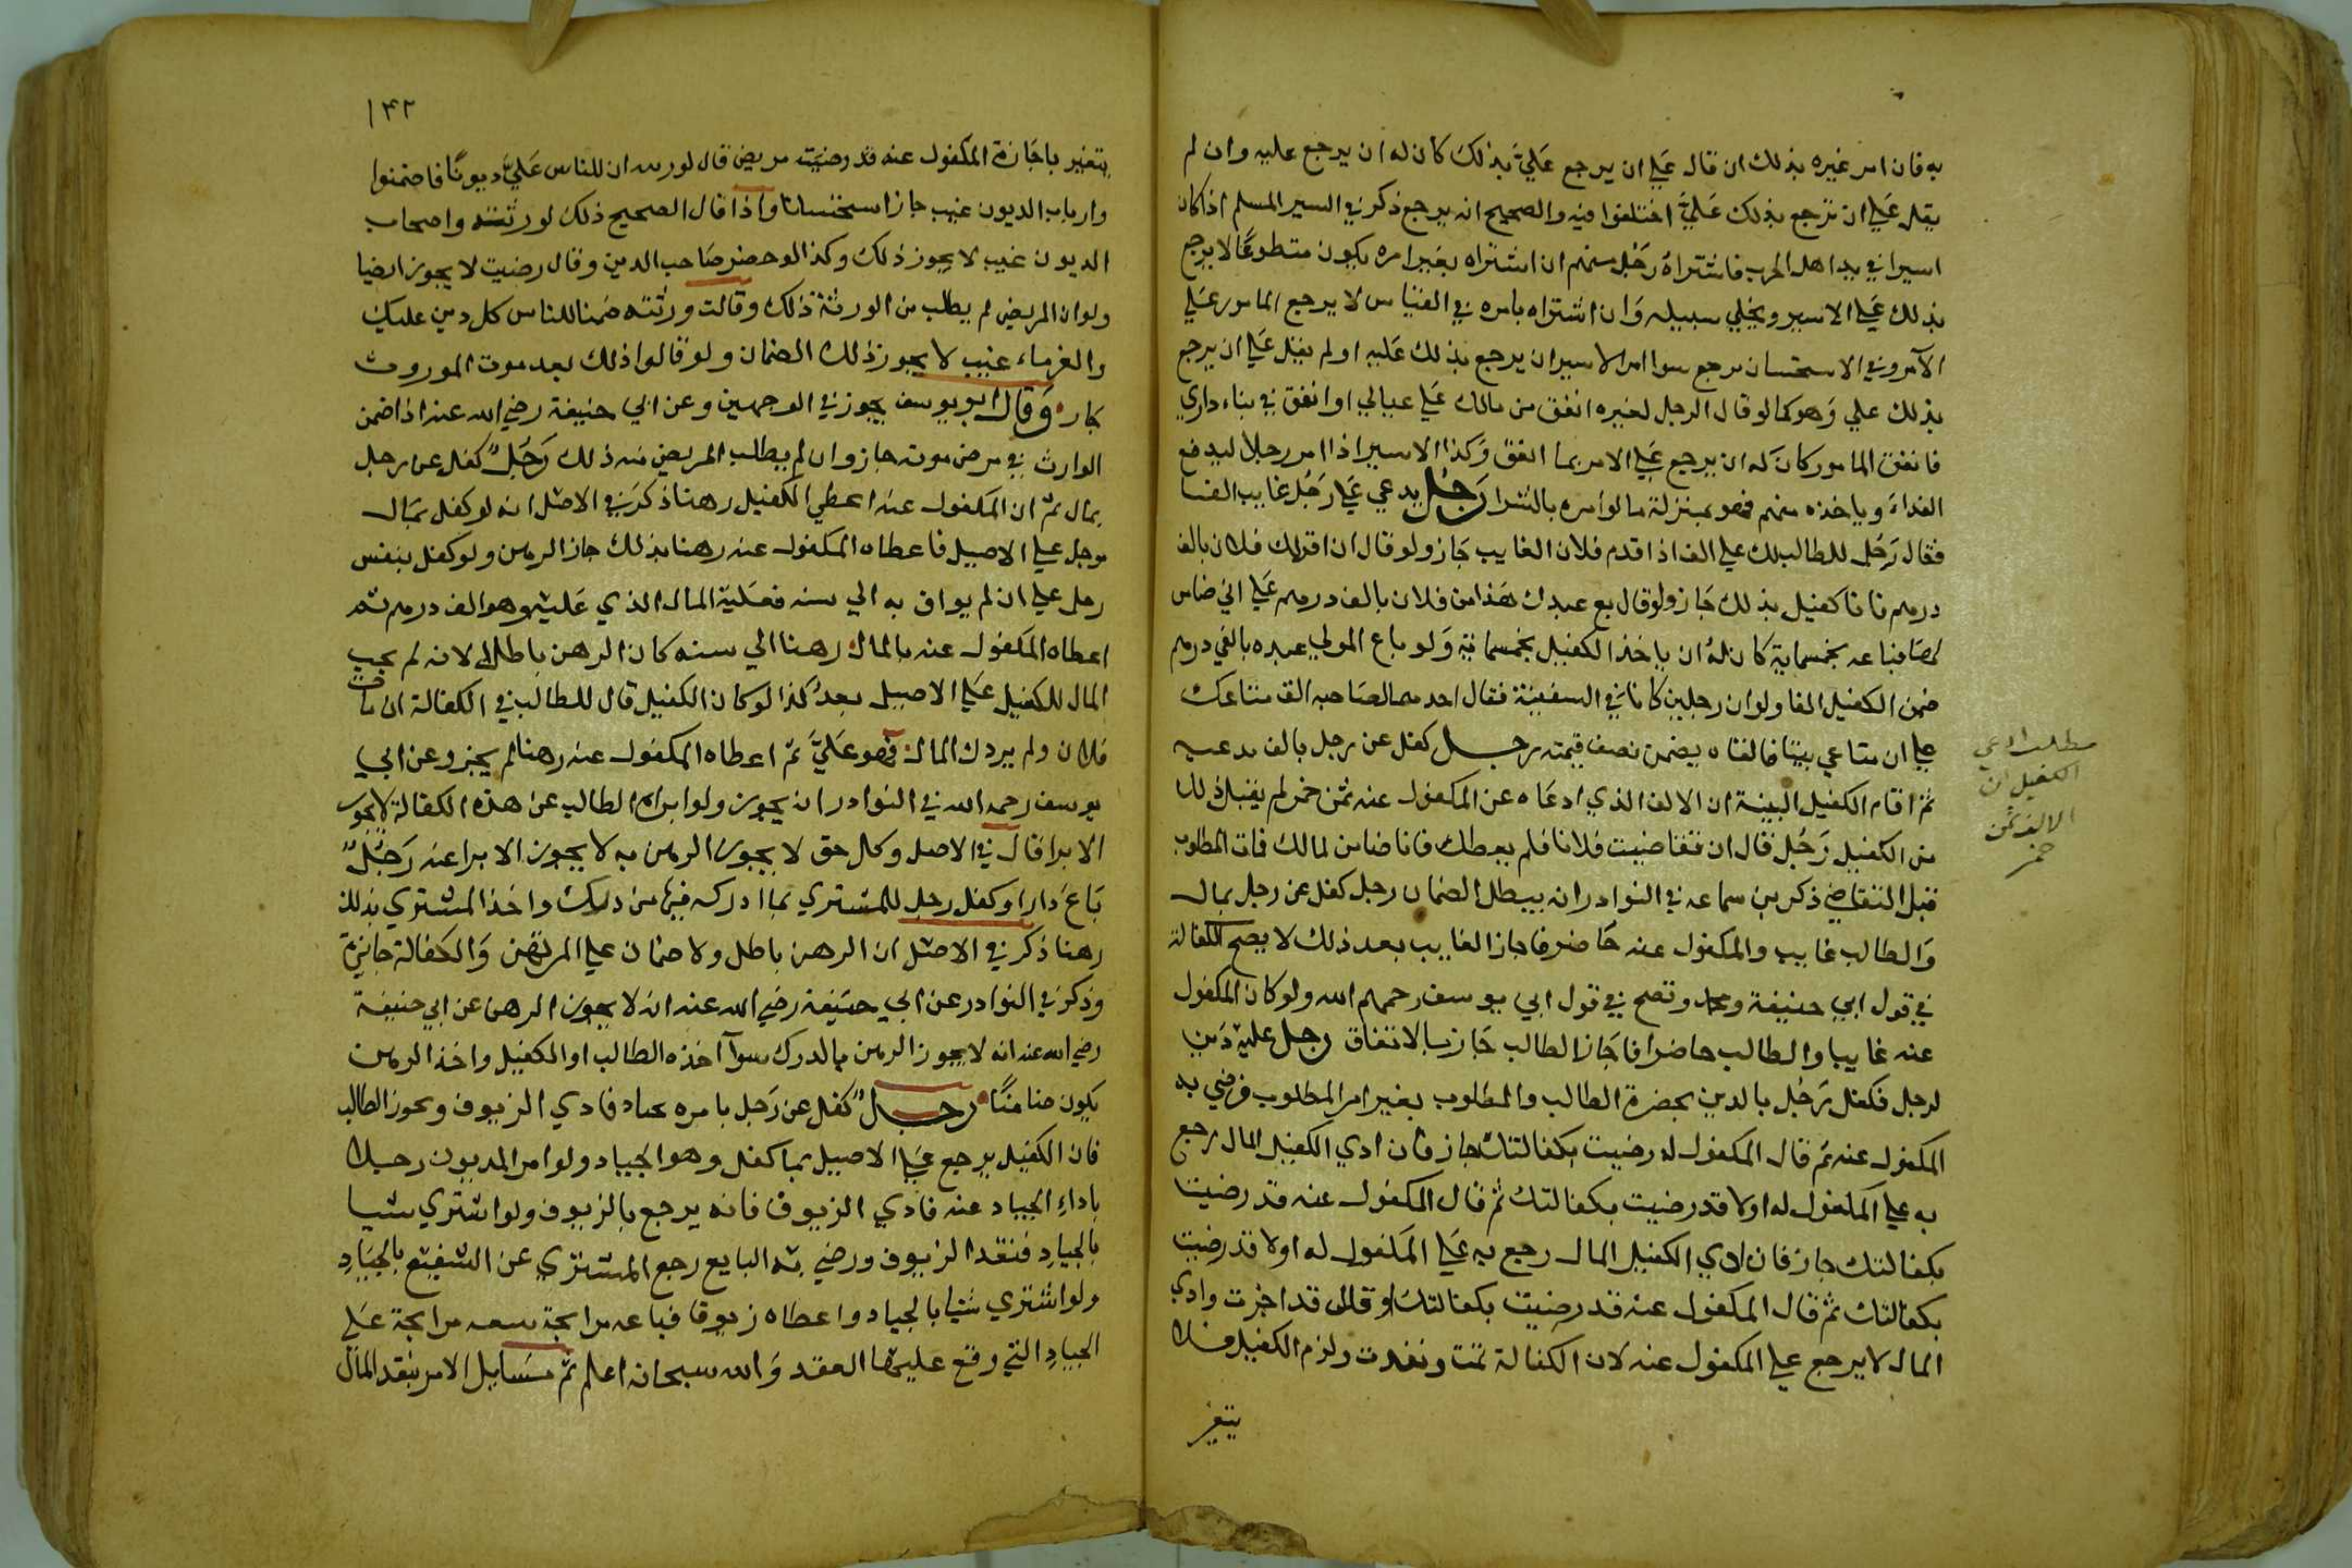 به فان امر غيره بذلك ان قال علي ان يرجع عَليَّ بذلك كان له ان يرجع عليه وان لم
يقل علي ان ترجع بذلك عَليَّ اختلفوا فيه والصحيح انه يرجع ذكر في السير المسلم اذا كان
اسيرا في يد اهل الحرب فاشتراه رَجُل منهم ان اشتراه بغير امره يكون متطوعًا لا يرجع
بذلك عَلي الاسير ويخلي سبيله وَان اشتراه بامره في القياس لا يرجع المامور عَلي
الآمر وفي الاستحسان يرجع سوا امر الاسير ان يرجع بذلك عَليه او لم يقل عَلي ان يرجع
بذلك علي وَهو كما لو قال الرجل لغيره انفق من مالك عَلي عيالي او انفق في بناء داري
فانفق المامور كانَ له ان يرجع عَلي الامر بما انفق وَكذا الاسير اذا امر رجلا ليدفع
الفداء وياخذه منهم فهو بمنزلة ما لو امره بالشرا رَجُل يدعي عَلي رَجُل غايب الفا
فقال رَجُل للطالب لك علي الف اذا قدم فلان الغايب جَاز ولو قال ان اقرلك فلان بالف
درهم فانا كفيل بذلك جَاز ولو قال بع عبدك هَذا من فلان بالف درهم عَلي اني ضامن
لها فباعه بخمسماية كان لهُ ان ياخذ الكفيل بخمسماية وَلو باع المولي عبده بالفي درهم
ضمن الكفيل الفا ولو ان رجلين كانا في السفينة فقال احدهما لصَاحبه الق متاعك
علي ان متاعي بيننا فالقاه يضمن نصف قيمته رجل كفل عن رجل بالف يدعيه
ثمَّ اقام الكفيل البينة ان الالف الذي ادعَاه عن المكفول عنه ثمن خمر لم يقبل ذلك
من الكفيل رَجُل قال ان تقاضيت فلانا فلم يعطك فانا ضامن لمالك فمات المطلوب
قبل التقاضي ذكر بن سماعه في النوادر انه يبطل الضمان رجل كفل عن رجل بمال
وَالطالب غايب والمكفول عنه حَاضر فاجاز الغايب بعد ذلك لا يصح الكفالة
في قول ابي حنيفة ومحمد وتصح في قول ابي يوسف رحمهم الله ولو كان المكفول
عنه غايبا والطالب حاضرا فاجَاز الطالب جَاز بالاتفاق رجل عليه دَين
لرجل فكفل رَجُل بالدين بحضرة الطالب والمطلوب بغير امر المطلوب فرضي به
المكفول عنه ثم قال المكفول له رضيت بكفالتك جاز فان ادي الكفيل المال رجع
به علي المكفول له اولا قد رضيت بكفالتك ثم قال المكفول عنه قد رضيت
بكفالتك جاز فان ادي الكفيل المال رجع به عَلي المكفول له اولا قد رضيت
بكفالتك ثم قال المكفول عنه قد رضيت بكفالتك او قال قد اجزت وادي
المال لا يرجع علي المكفول عنه لان الكفالة تمت ونفدت ولزم الكفيل فلا
يتغير
مطلب ادعي
الكفيل ان
الالف ثمن
خمر
١٤٢
يتغير باجَازة المكفول عنه قد رضيت مريض قال لورثته ان للناس عَليَّ ديونًا فاضمنوا
وارباب الديون غيب جاز استحسانا واذا قال الصحيح ذلك لورثته واصحاب
الديون غيب لا يجوز ذلك وكذا لو حضر صَاحب الدين وقال رضيت لا يجوز ايضا
ولو ان المريض لم يطلب من الورثة ذلك وقالت ورثته ضمنا للناس كل دين عليك
والغرماء غيب لا يجوز ذلك الضمان ولو قالوا ذلك بعد موت الموروث
جاز وَقال ابو يوسف يجوز في الوجهين وعن ابي حنيفة رضي الله عنه اذا ضمن
الوارث في مرض موته جاز وان لم يطلب المريض منه ذلك رَجُلٌ كفل عن رجل
بمال ثمّ ان المكفول عنه اعطي الكفيل رهنا ذكر في الاصل انه لو كفل بمال
موجل علي الاصيل فاعطاه المكفول عنه رهنا بذلك جاز الرهن ولو كفل بنفس
رجل علي ان لم يواف به الي سنه فعَليه المال الذي عَليه وهو الف درهم ثم
اعطاه المكفول عنه بالمال رهنا الي سنه كان الرهن باطلا لانه لم يجب
المال للكفيل عَلي الاصيل بعدُ كذا لو كان الكفيل قال للطالب في الكفالة ان مات
فلان ولم يردك المال فهو عَليَّ ثمّ اعطاه المكفول عنه رهنا لم يجز وعن ابي
يوسف رحمه الله في النوادر انه يجوز ولو ابراه الطالب عن هذه الكفالة لا يجوز
الابرا قال في الاصل وكل حق لا يجوز الرهن به لا يجوز الابرا عنه رَجُلٌ
بَاعَ دَارا وكفل رجل للمشتري بما ادركه فيها من درك واخذ المشتري بذلك
رهنا ذكر في الاصل ان الرهن باطل ولا ضمان علي المرتهن وَالكفالة جايزة
وذكر في النوادر عن ابي حنيفة رضي الله عنه انه لا يجوز الرهن عن ابي حنيفة
رضي الله عنه انه لا يجوز الرهن بالدرك سوآ اخذه الطالب او الكفيل واخذ الرهن
يكون ضامنًا رجلٌ كفل عن رَجل بامره بجياد فادي الزيوف وتجوز الطالب
فان الكفيل يرجع عَلي الاصيل بما كفل وهو الجياد ولو امر المديون رجلا
باداءِ الجياد عنه فادي الزيوف فانه يرجع بالزيوف ولو اشتري شيا
بالجيادِ فنقد الزيوف ورضي به البايع رجع المشتري عن الشفيع بالجيَادِ
ولو اشتري شيا بالجياد واعطاه زيوفا فباعه مرابحة يبيعه مرابحة عَلي
الجيادِ التي وقع عليها العقد وَالله سبحانه اعلم ثمّ مسَايل الامر بنقد المال